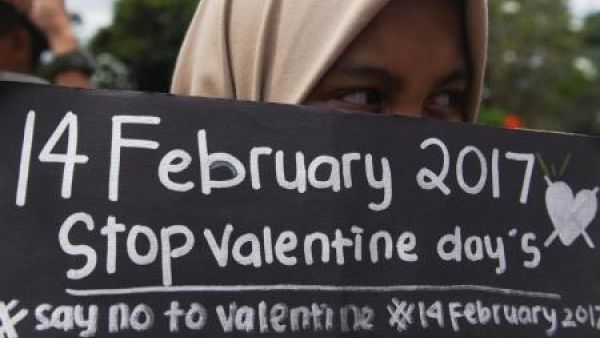 14 February 2017
Stop valentine day's
# say no to valentine #14 February 2017